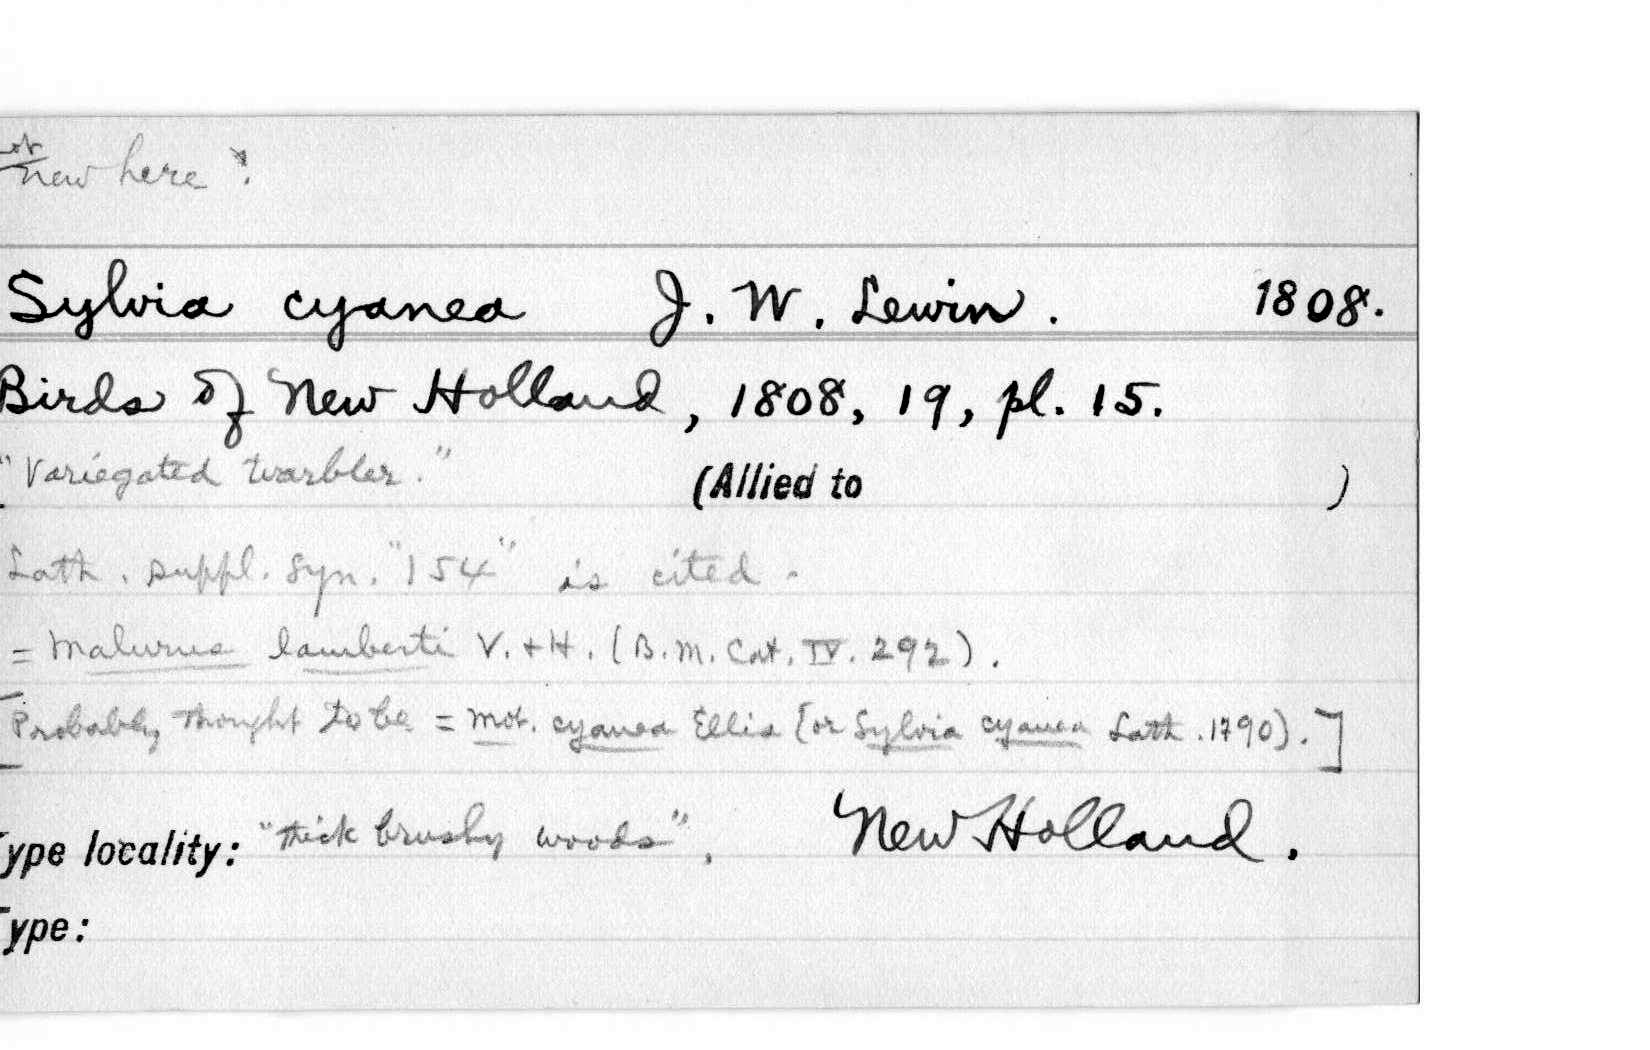 not
new here ?
Sylvia cyanea J. W. Lewin. 1808.
Birds of New Holland, 1808, 19, pl. 15.
"Variegated warbler." (Allied to )
Lath. suppl. Syn. "154" is cited.
= Malurus lamberti V. + H. (B. M. Cat. IV. 292).
[Probably thought to be = Mot. cyanea Ellis (or Sylvia cyanea Lath. 1790).]
ype locality: "thick brushy woods", New Holland.
Type: